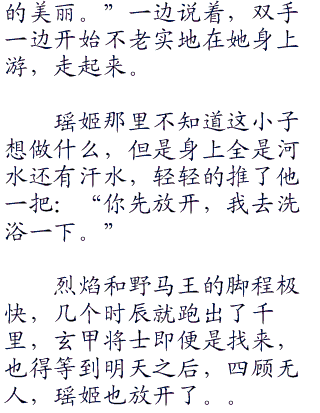 的美丽。”一边说着，双手
一边开始不老实地在她身上
游，走起来。
瑶姬那里不知道这小子
想做什么，但是身上全是河
水还有汗水，轻轻的推了他
一把：“你先放开，我去洗
浴一下。”
烈焰和野马王的脚程极
快，几个时辰就跑出了千
里，玄甲将士即便是找来，
也得等到明天之后，四顾无
人，瑶姬也放开了。。